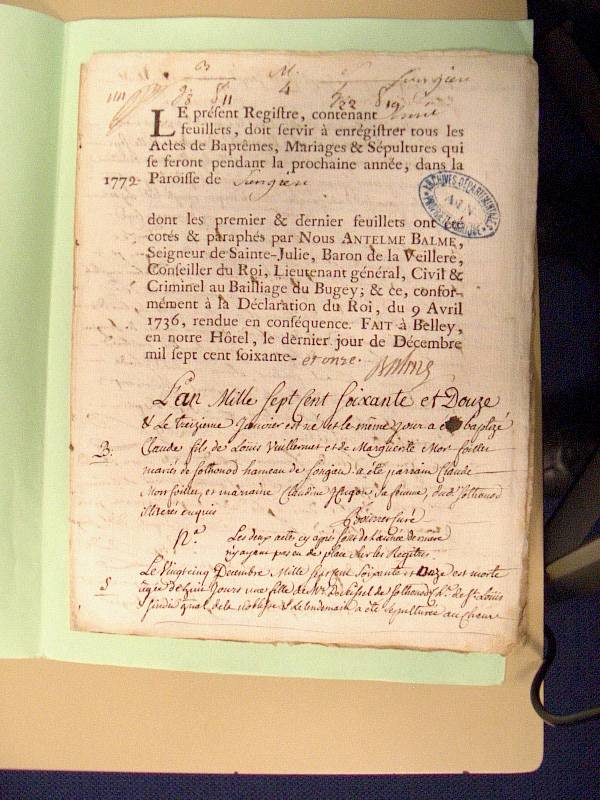 B M. S Songieu
8 11 4 22 S 19
LE présent Registre, contenant huit
feuillets, doit servir à enrégistrer tous les
Actes de Baptêmes, Mariages & Sépultures qui
se feront pendant la prochaine année, dans la
1772 Paroisse de Songieu
ARCHIVES DÉPARTEMENTALES AIN
dont les premier & dernier feuillets ont été
cotés & paraphés par Nous ANTELME BALME,
Seigneur de Sainte-Julie, Baron de la Veillere,
Conseiller du Roi, Lieutenant général, Civil &
Criminel au Bailliage du Bugey; & ce, confor-
mément à la Déclaration du Roi, du 9 Avril
1736, rendue en conséquence. FAIT à Belley,
en notre Hôtel, le dernier jour de Décembre
mil sept cent soixante- et onze.
Balme
L'an Mille sept sent soixante et Douze
& Le treizieme Janvier est né et le même jour a eté baptizé
B. Claude fils de Louis Vuillermet et de Marguerite
mariés de Sothonod hameau de Songieu a eté parrain Claude
et marraine Claudine Hugon sa femme, dud. Sothonod
illiterés enquis
curé
Na Les deux actes cy après sont de l'année derniere
n'y ayant pas eu de place sur les Registres
Le Vingt cinq Decembre Mille sept sent soixante et onze est morte
S agée de huit Jours une fille de Mr de Sothonod de St Louis
sindic gnal. de la noblesse & le lendemain a eté sepulturée au